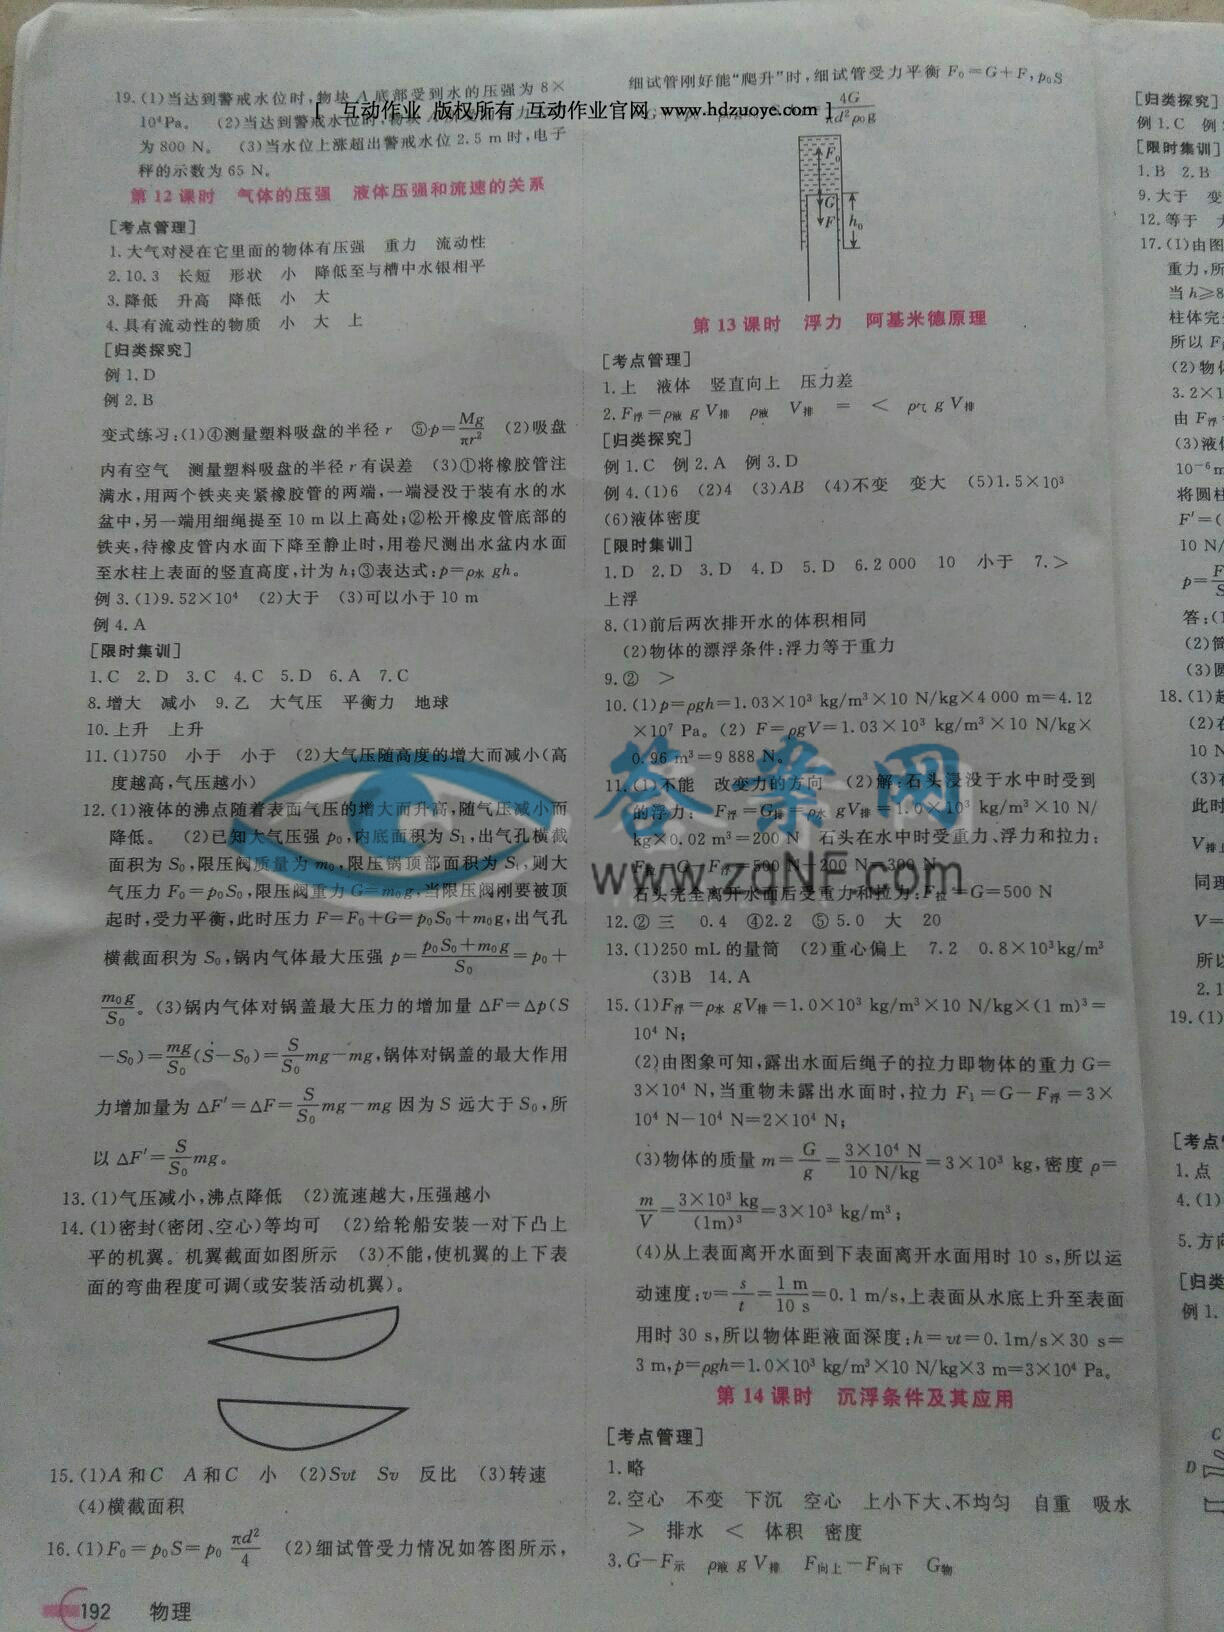 19.(1)当达到警戒水位时,物块A底部受到水的压强为8×
10⁴Pa。 (2)当达到警戒水位时,物块
为800 N。 (3)当水位上涨超出警戒水位2.5 m时,电子
秤的示数为65 N。
[ 互动作业 版权所有 互动作业官网 www.hdzuoye.com ]
第12课时 气体的压强 液体压强和流速的关系
[考点管理]
1.大气对浸在它里面的物体有压强 重力 流动性
2.10.3 长短 形状 小 降低至与槽中水银相平
3.降低 升高 降低 小 大
4.具有流动性的物质 小 大 上
[归类探究]
例1.D
例2.B
变式练习:(1)④测量塑料吸盘的半径r ⑤p=Mg/πr² (2)吸盘
内有空气 测量塑料吸盘的半径r有误差 (3)①将橡胶管注
满水,用两个铁夹夹紧橡胶管的两端,一端浸没于装有水的水
盆中,另一端用细绳提至10 m以上高处;②松开橡皮管底部的
铁夹,待橡皮管内水面下降至静止时,用卷尺测出水盆内水面
至水柱上表面的竖直高度,计为h;③表达式:p=ρ水 gh。
例3.(1)9.52×10⁴ (2)大于 (3)可以小于10 m
例4.A
[限时集训]
1.C 2.D 3.C 4.C 5.D 6.A 7.C
8.增大 减小 9.乙 大气压 平衡力 地球
10.上升 上升
11.(1)750 小于 小于 (2)大气压随高度的增大而减小(高
度越高,气压越小)
12.(1)液体的沸点随着表面气压的增大而升高,随气压减小而
降低。 (2)已知大气压强p₀,内底面积为S₁,出气孔横截
面积为S₀,限压阀质量为m₀,限压锅顶部面积为S₁,则大
气压力F₀=p₀S₀,限压阀重力G=m₀g,当限压阀刚要被顶
起时,受力平衡,此时压力F=F₀+G=p₀S₀+m₀g,出气孔
横截面积为S₀,锅内气体最大压强p=(p₀S₀+m₀g)/S₀=p₀+
m₀g/S₀。(3)锅内气体对锅盖最大压力的增加量△F=△p(S
-S₀)=mg/S₀(S-S₀)=S/S₀mg-mg,锅体对锅盖的最大作用
力增加量为△F′=△F=S/S₀mg-mg因为S远大于S₀,所
以△F′=S/S₀mg。
13.(1)气压减小,沸点降低 (2)流速越大,压强越小
14.(1)密封(密闭、空心)等均可 (2)给轮船安装一对下凸上
平的机翼。机翼截面如图所示 (3)不能,使机翼的上下表
面的弯曲程度可调(或安装活动机翼)。
15.(1)A和C A和C 小 (2)Svt Sv 反比 (3)转速
(4)横截面积
16.(1)F₀=p₀S=p₀πd²/4 (2)细试管受力情况如答图所示,
192 物理
细试管刚好能“爬升”时,细试管受力平衡F₀=G+F,p₀S
4G/πd²ρ₀g
F₀
G
F
h₀
第13课时 浮力 阿基米德原理
[考点管理]
1.上 液体 竖直向上 压力差
2.F浮=ρ液 g V排 ρ液 V排 = < ρ气 g V排
[归类探究]
例1.C 例2.A 例3.D
例4.(1)6 (2)4 (3)AB (4)不变 变大 (5)1.5×10³
(6)液体密度
[限时集训]
1.D 2.D 3.D 4.D 5.D 6.2 000 10 小于 7.>
上浮
8.(1)前后两次排开水的体积相同
(2)物体的漂浮条件:浮力等于重力
9.② >
10.(1)p=ρgh=1.03×10³ kg/m³×10 N/kg×4 000 m=4.12
×10⁷ Pa。(2) F=ρgV=1.03×10³ kg/m³×10 N/kg×
0.96 m³=9 888 N。
11.(1)不能 改变力的方向 (2)解:石头浸没于水中时受到
的浮力: F浮=G排=ρ水 gV排=1.0×10³ kg/m³×10 N/
kg×0.02 m³=200 N 石头在水中时受重力、浮力和拉力:
F拉=G-F浮=500 N-200 N=300 N
石头完全离开水面后受重力和拉力:F拉=G=500 N
12.② 三 0.4 ④2.2 ⑤5.0 大 20
13.(1)250 mL的量筒 (2)重心偏上 7.2 0.8×10³kg/m³
(3)B 14.A
15.(1)F浮=ρ水 gV排=1.0×10³ kg/m³×10 N/kg×(1 m)³=
10⁴ N;
(2)由图象可知,露出水面后绳子的拉力即物体的重力G=
3×10⁴ N,当重物未露出水面时,拉力F₁=G-F浮=3×
10⁴ N-10⁴ N=2×10⁴ N;
(3)物体的质量m=G/g=3×10⁴ N/10 N/kg=3×10³ kg,密度ρ=
m/V=3×10³ kg/(1m)³=3×10³ kg/m³;
(4)从上表面离开水面到下表面离开水面用时10 s,所以运
动速度:v=s/t=1 m/10 s=0.1 m/s,上表面从水底上升至表面
用时30 s,所以物体距液面深度:h=vt=0.1m/s×30 s=
3 m,p=ρgh=1.0×10³ kg/m³×10 N/kg×3 m=3×10⁴ Pa。
第14课时 沉浮条件及其应用
[考点管理]
1.略
2.空心 不变 下沉 空心 上小下大、不均匀 自重 吸水
> 排水 < 体积 密度
3.G-F示 ρ液 g V排 F向上-F向下 G物
答案网
www.zqNF.com
[归类探究]
例1.C 例
[限时集训]
1.B 2.B
9.大于 变
12.等于
17.(1)由图
重力,所
当h≥8
柱体完
所以F
(2)物体
3.2×1
由F浮
(3)液体
10⁻⁶m
将圆柱
F′=(
10 N/
p=F/S
答:(1
(2)筒
(3)圆
18.(1)
(2)在
10 N
(3)石
此时
V排
同理
V=
所以
2.1
19.(1)
[考点管
1.点
4.(1)
5.方向
[归类
例1.
C
D